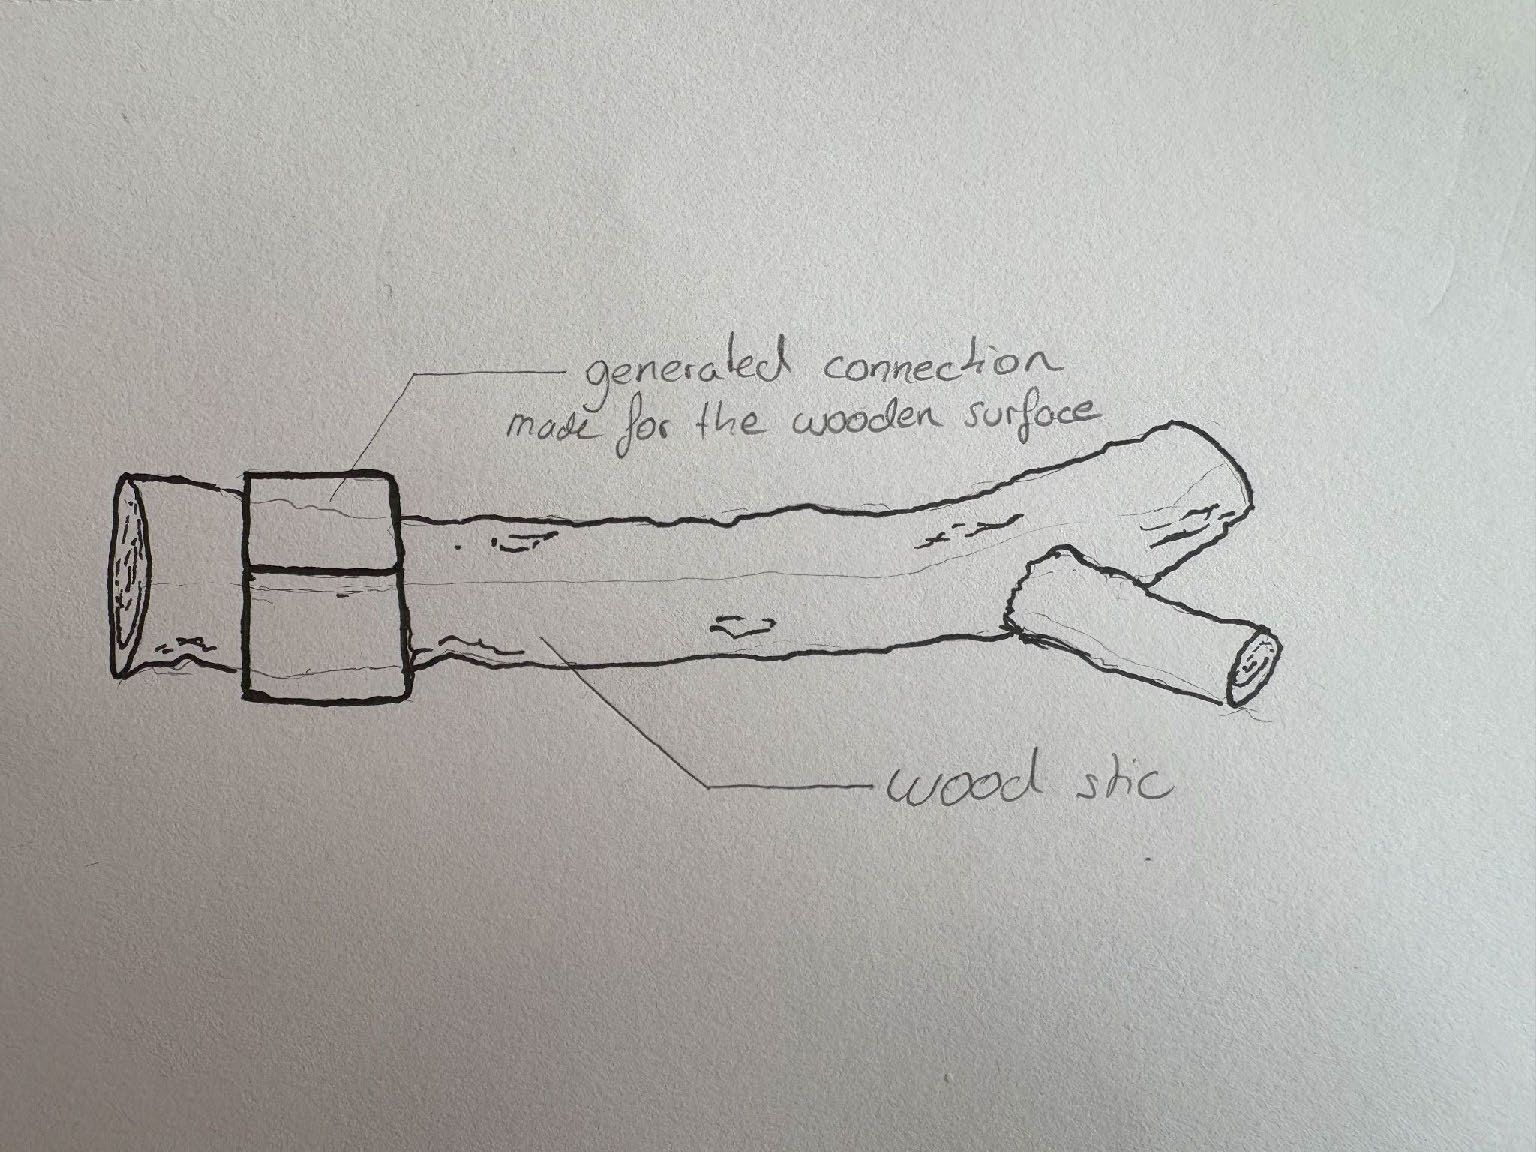 generated connection
made for the wooden surface
wood stic